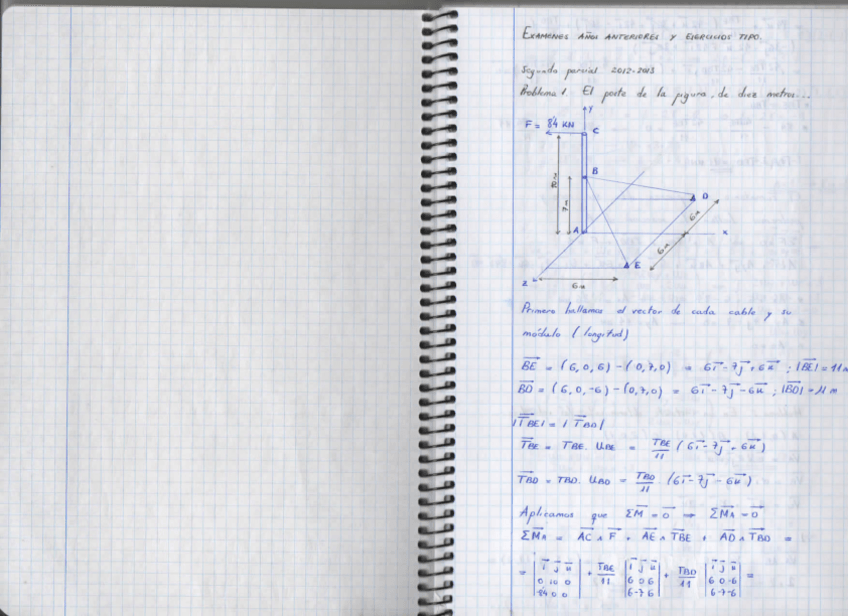 EXAMENES AÑOS ANTERIORES Y EJERCICIOS TIPO.
Segundo parcial 2012-2013
Problema 1. El poste de la figura, de diez metros...
y
F = 84 KN
C
B
D
10 m
7 m
A
x
6 m
6 m
E
z
6 m
Primero hallamos el vector de cada cable y su
módulo (longitud)
BE = (6,0,6) - (0,7,0) = 6i - 7j + 6k ; |BE| = 11 m
BD = (6,0,-6) - (0,7,0) = 6i - 7j - 6k ; |BD| = 11 m
|TBE| = |TBD|
TBE = TBE · UBE = TBE/11 (6i - 7j + 6k)
TBD = TBD · UBD = TBD/11 (6i - 7j - 6k)
Aplicamos que ΣM = 0 ⇒ ΣMA = 0
ΣMA = AC ∧ F + AE ∧ TBE + AD ∧ TBD =
= | i j k | + TBE/11 | i j k | + TBD/11 | i j k | =
0 10 0 6 0 6 6 0 -6
-84 0 0 6 -7 6 6 -7 -6